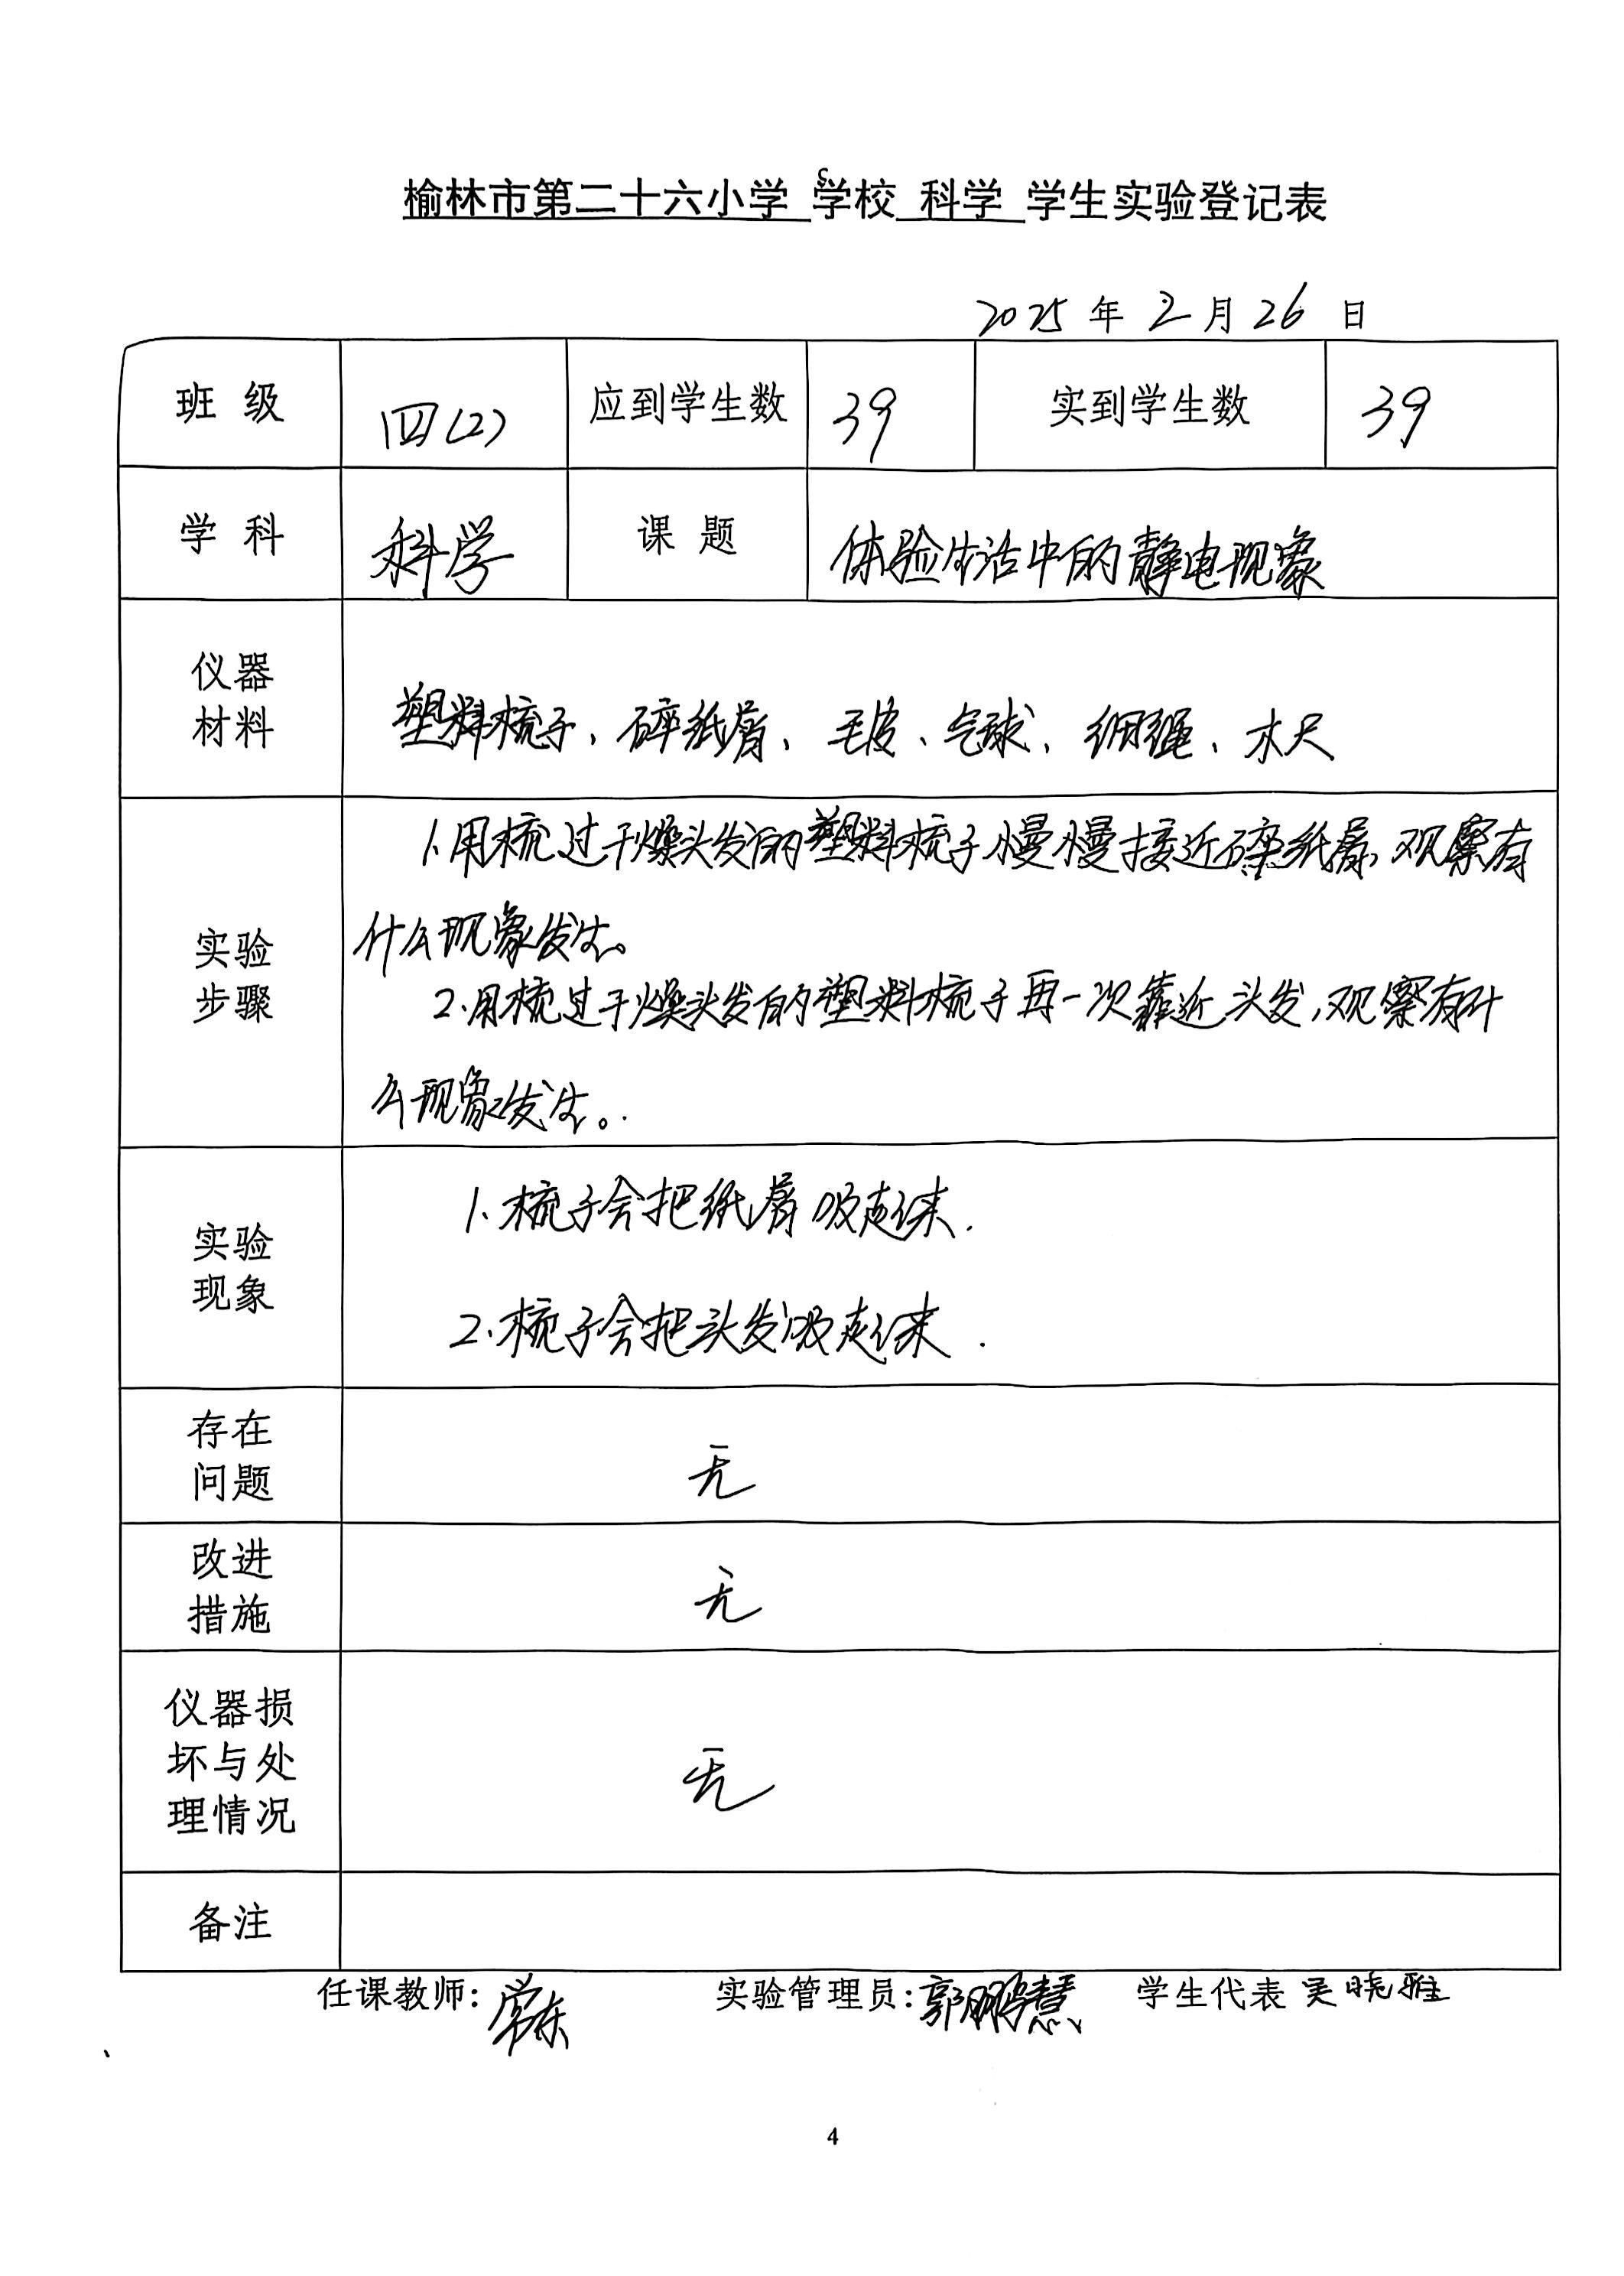 榆林市第二十六小学 学校 科学 学生实验登记表
2025 年 2 月 26 日
班 级 四(2) 应到学生数 39 实到学生数 39
学 科 科学 课 题 体验生活中的静电现象
仪器
材料
塑料梳子、碎纸屑、毛皮、气球、细绳、木尺
实验
步骤
1.用梳过干燥头发的塑料梳子慢慢接近碎纸屑,观察有
什么现象发生。
2.用梳过干燥头发的塑料梳子再一次靠近头发,观察有什
么现象发生。
实验
现象
1.梳子会把纸屑吸起来.
2.梳子会把头发吸起来.
存在
问题
无
改进
措施
无
仪器损
坏与处
理情况
无
备注
任课教师: 实验管理员:郭鹏慧 学生代表 吴晓雅
4